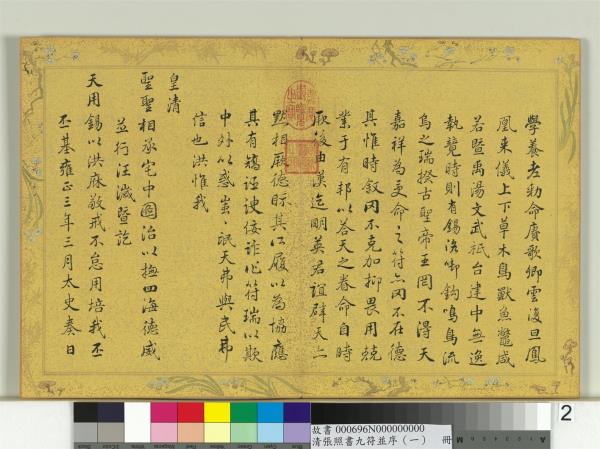 學養老勅命賡歌卿雲復旦鳳
凰來儀上下草木鳥獸魚鱉咸
若暨禹湯文武祇台建中無逸
執競時則有錫洛啣鈎鳴鳥流
烏之瑞揆古聖帝王罔不得天
嘉祥為受命之符亦罔不在德
其惟時叙罔不克加抑畏用兢
業于有邦以荅天之眷命自時
厥後由漢迄明英君誼辟天亦
黙相厥德眎其所履以為協應
其有矯誣諛佞詐作符瑞以欺
中外以惑蚩〻氓天弗與民弗
信也洪惟我
皇清
聖聖相承宅中圖治以撫四海德威
並行汪濊暨訖
天用錫以洪庥敬戒不怠用培我丕
丕基雍正三年三月太史奏日
2
故書 000696N000000000
清張照書九符並序(一) 冊